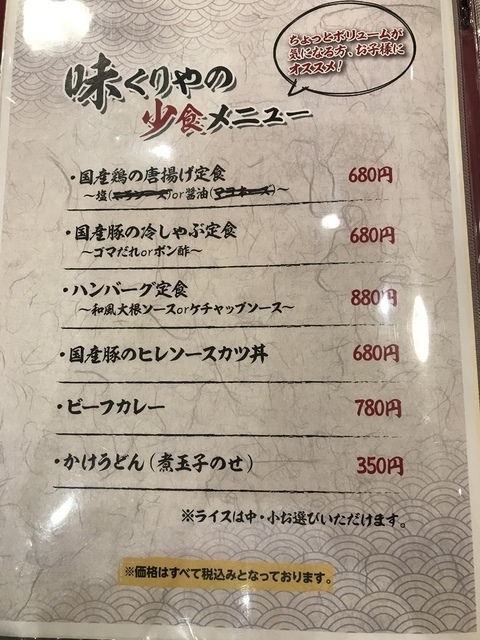 ちょっとボリュームが
気になる方、お子様に
オススメ!
味くりやの
少食メニュー
・国産鶏の唐揚げ定食 680円
〜塩(ネギソース)or醤油(マヨネーズ)〜
・国産豚の冷しゃぶ定食 680円
〜ゴマだれorポン酢〜
・ハンバーグ定食 880円
〜和風大根ソースorケチャップソース〜
・国産豚のヒレソースカツ丼 680円
・ビーフカレー 780円
・かけうどん(煮玉子のせ) 350円
※ライスは中・小お選びいただけます。
※価格はすべて税込みとなっております。